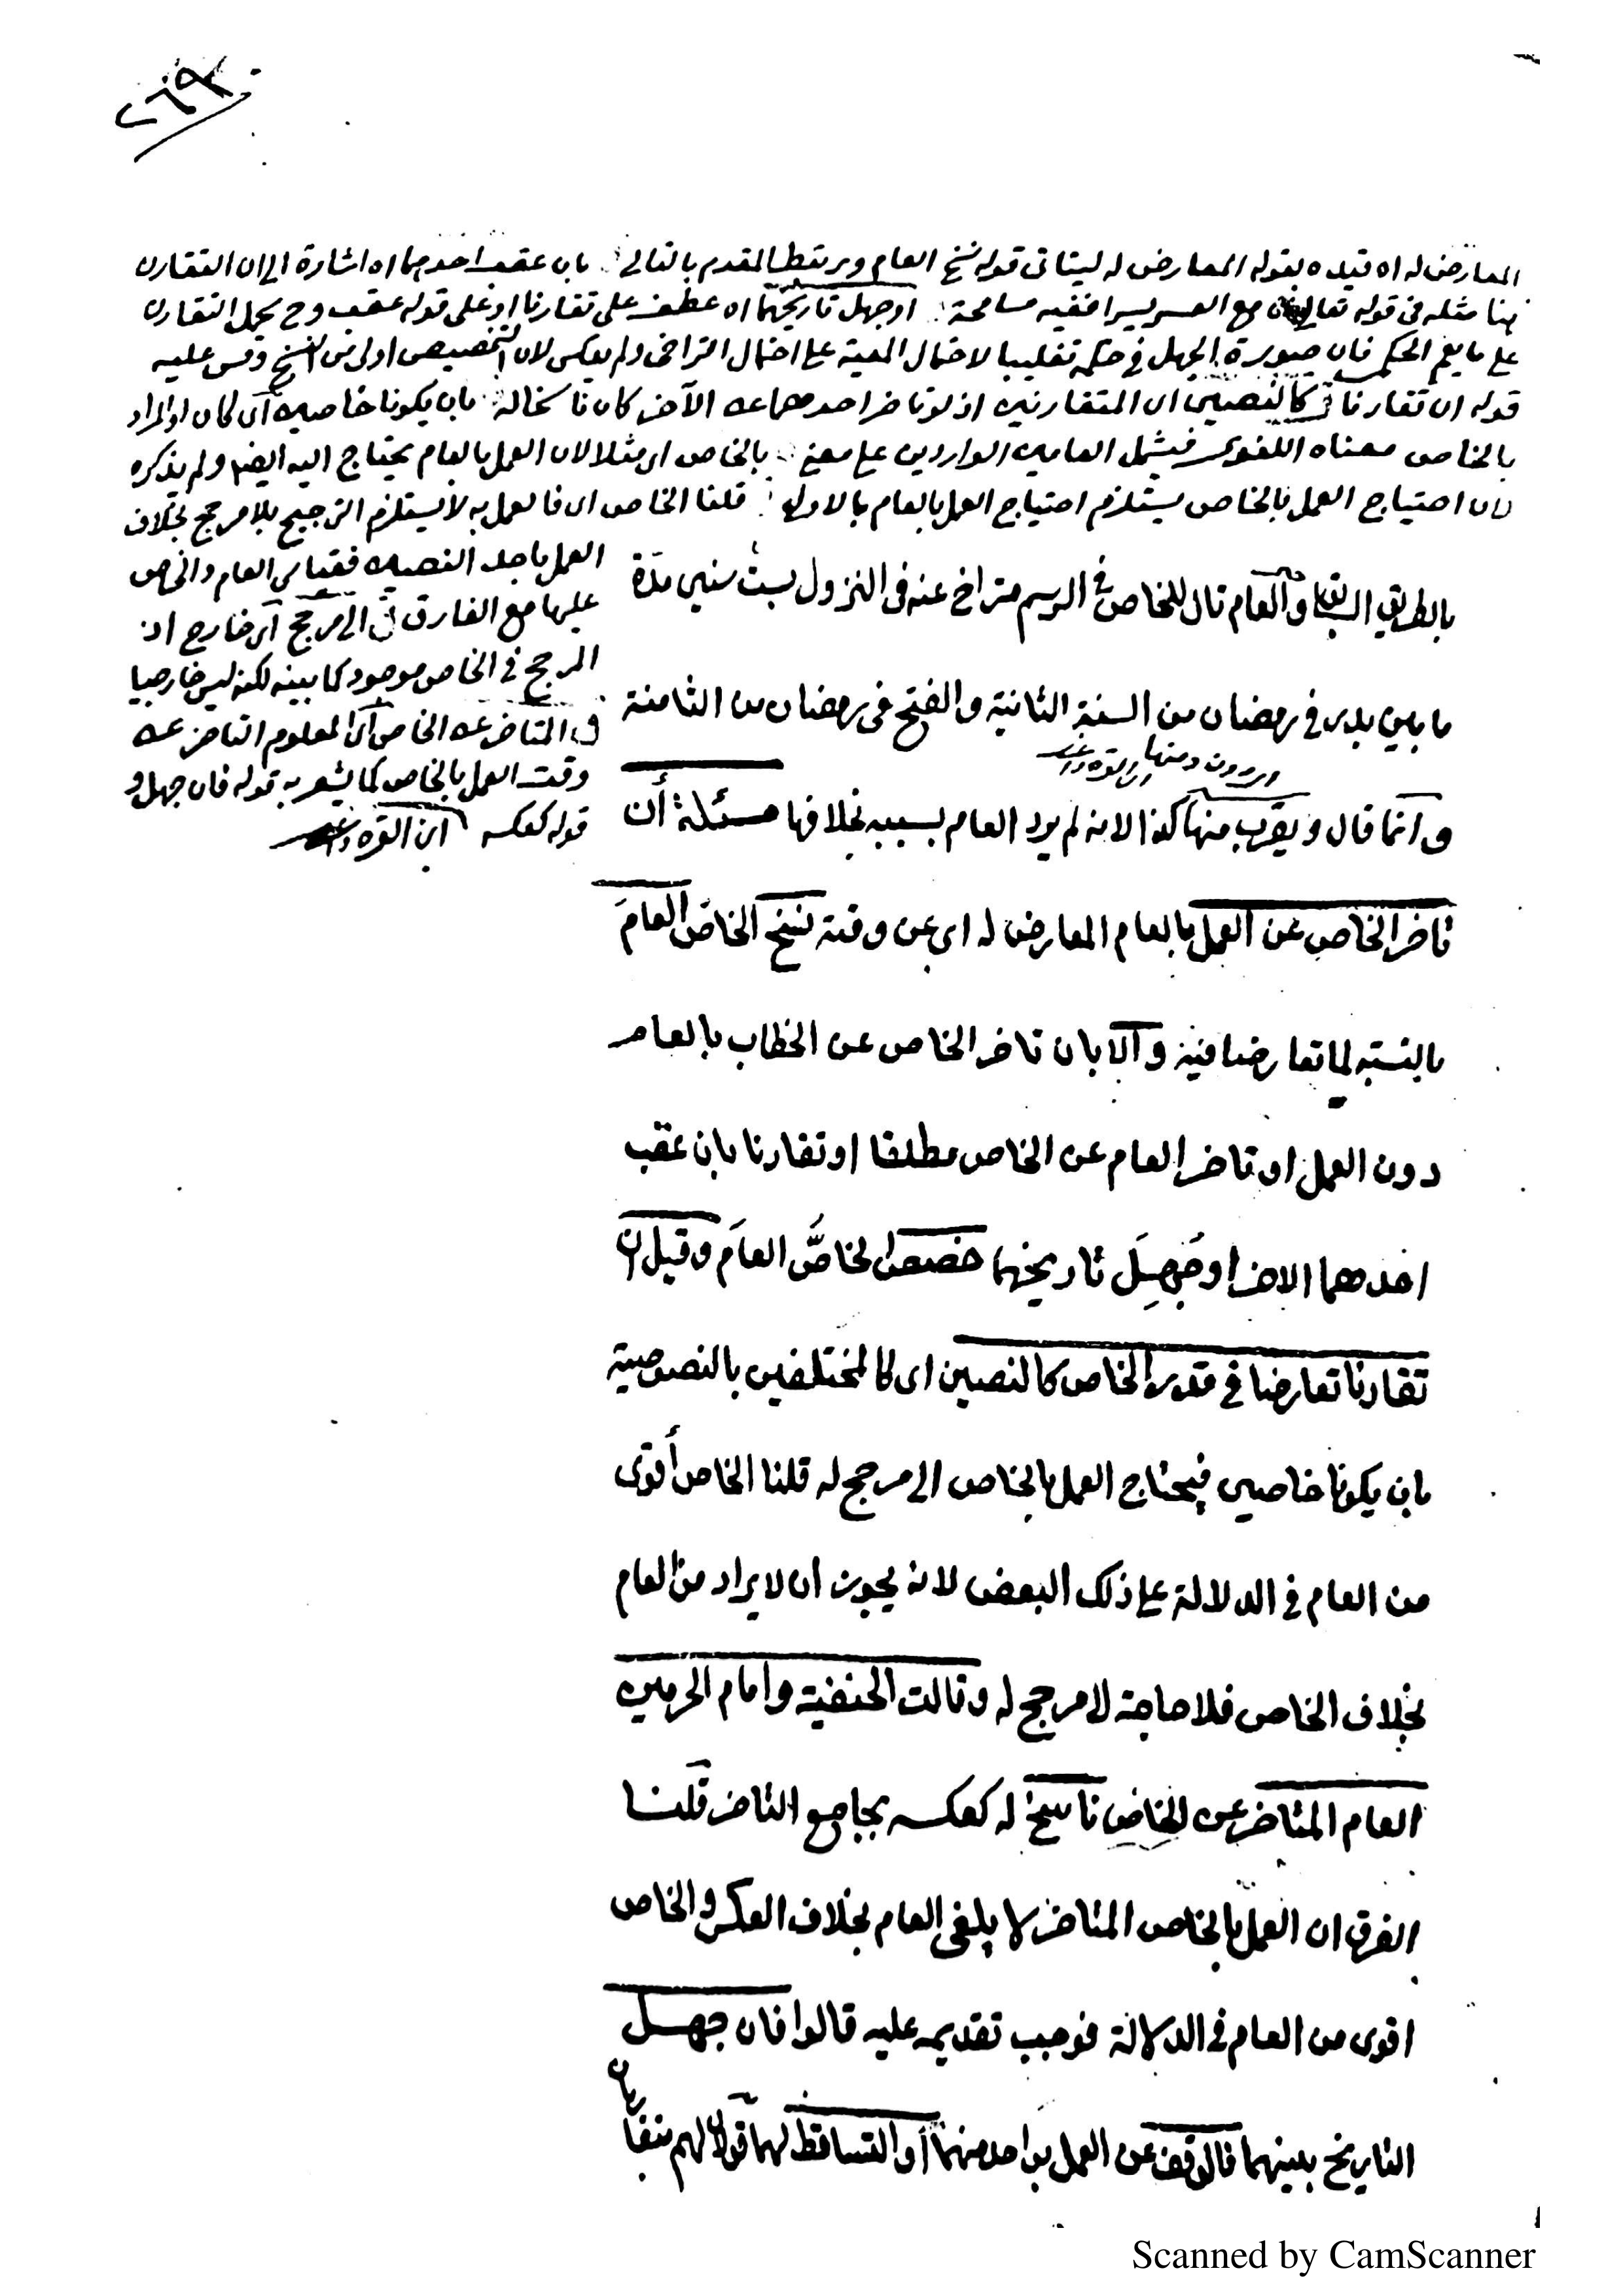 ٢٦٩
المعارض له اه قيده بقوله المعارض له ليتاتى قوله نسخ العام ويرتبط المقدم بالتالى بان عقب احدهما اه اشارة الى ان التقارن
هنا مثله فى قوله تعالى ان مع العسر يسرا ففيه مسامحة او جهل تاريخهما اه عطف على تقارنا او على قوله عقب وح يحمل التقارن
على ما يعم الحكمى فان صورة الجهل فى حكمه تغليبا لاحتمال المعية على احتمال التراخى ولم يعكس لان التخصيص اولى من النسخ وقس عليه
قوله ان تقارنا كالنصين اى المتقارنين اذ لو تاخر احدهما عن الآخر كان ناسخا له بان يكونا خاصين اى كان المراد
بالخاص معناه اللغوى فيشمل العامين الواردين على معنى بالخاص اى مثلا لان العمل بالعام يحتاج اليه ايضا ولم يذكره
لان احتياج العمل بالخاص يستلزم احتياج العمل بالعام بالاولى قلنا الخاص اى فالعمل به لا يستلزم الترجيح بلا مرجح بخلاف
العمل باحد النصين فقياس العام والخاص
عليهما مع الفارق الى مرجح اى خارج اذ
المرجح فى الخاص موجود كما بينه لكنه ليس خارجيا
المتاخر عن الخاص اى المعلوم التاخر عن
وقت العمل بالخاص كما يشعر به قوله فان جهل
قوله كعكسه ابن القره داغى
بالطريق السابق والعام تال للخاص فى الرسم متراخ عنه فى النزول بست سنين مدة
ما بين بدر فى رمضان من السنة الثانية والفتح فى رمضان من الثامنة
دون ومنها ابن القره داغى
وانما قال ويقرب منها كذا لانه لم يرد العام بسببه بخلافها مسئلة أن
تاخر الخاص عن العمل بالعام المعارض له اى عن وقته نسخ الخاص العام
بالنسبة لما تعارضا فيه والا بان تاخر الخاص عن الخطاب بالعام
دون العمل او تاخر العام عن الخاص مطلقا او تقارنا بان عقب
احدهما الاخر او جُهِلَ تاريخهما خصص الخاصُّ العامَ وقيل ان
تقارنا تعارضا فى قدر الخاص كالنصين اى كالمختلفين بالنصوصية
بان يكونا خاصين فيحتاج العمل بالخاص الى مرجح له قلنا الخاص أقوى
من العام فى الدلالة على ذلك البعض لانه يجوز ان لا يراد من العام
بخلاف الخاص فلا حاجة لا مرجح له وقالت الحنفية وامام الحرمين
العام المتاخر عن الخاص ناسخ له كعكسه بجامع التاخر قلنا
الفرق ان العمل بالخاص المتاخر لا يلغى العام بخلاف العكس والخاص
اقوى من العام فى الدلالة فوجب تقديمه عليه قالوا فان جهل
التاريخ بينهما فالوقف عن العمل بواحد منهما أو التساقط لهما قولان لهم متقاربان
Scanned by CamScanner